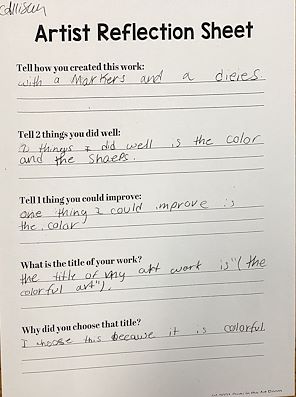 Artist Reflection Sheet
Tell how you created this work:
with a Markers and a dieies.
Tell 2 things you did well:
2 things I did well is the color
and the shaeps.
Tell 1 thing you could improve:
one thing I could improve is
the color
What is the title of your work?
the title of my art work is "(the
colorful art").
Why did you choose that title?
I choose this because it is colorful.